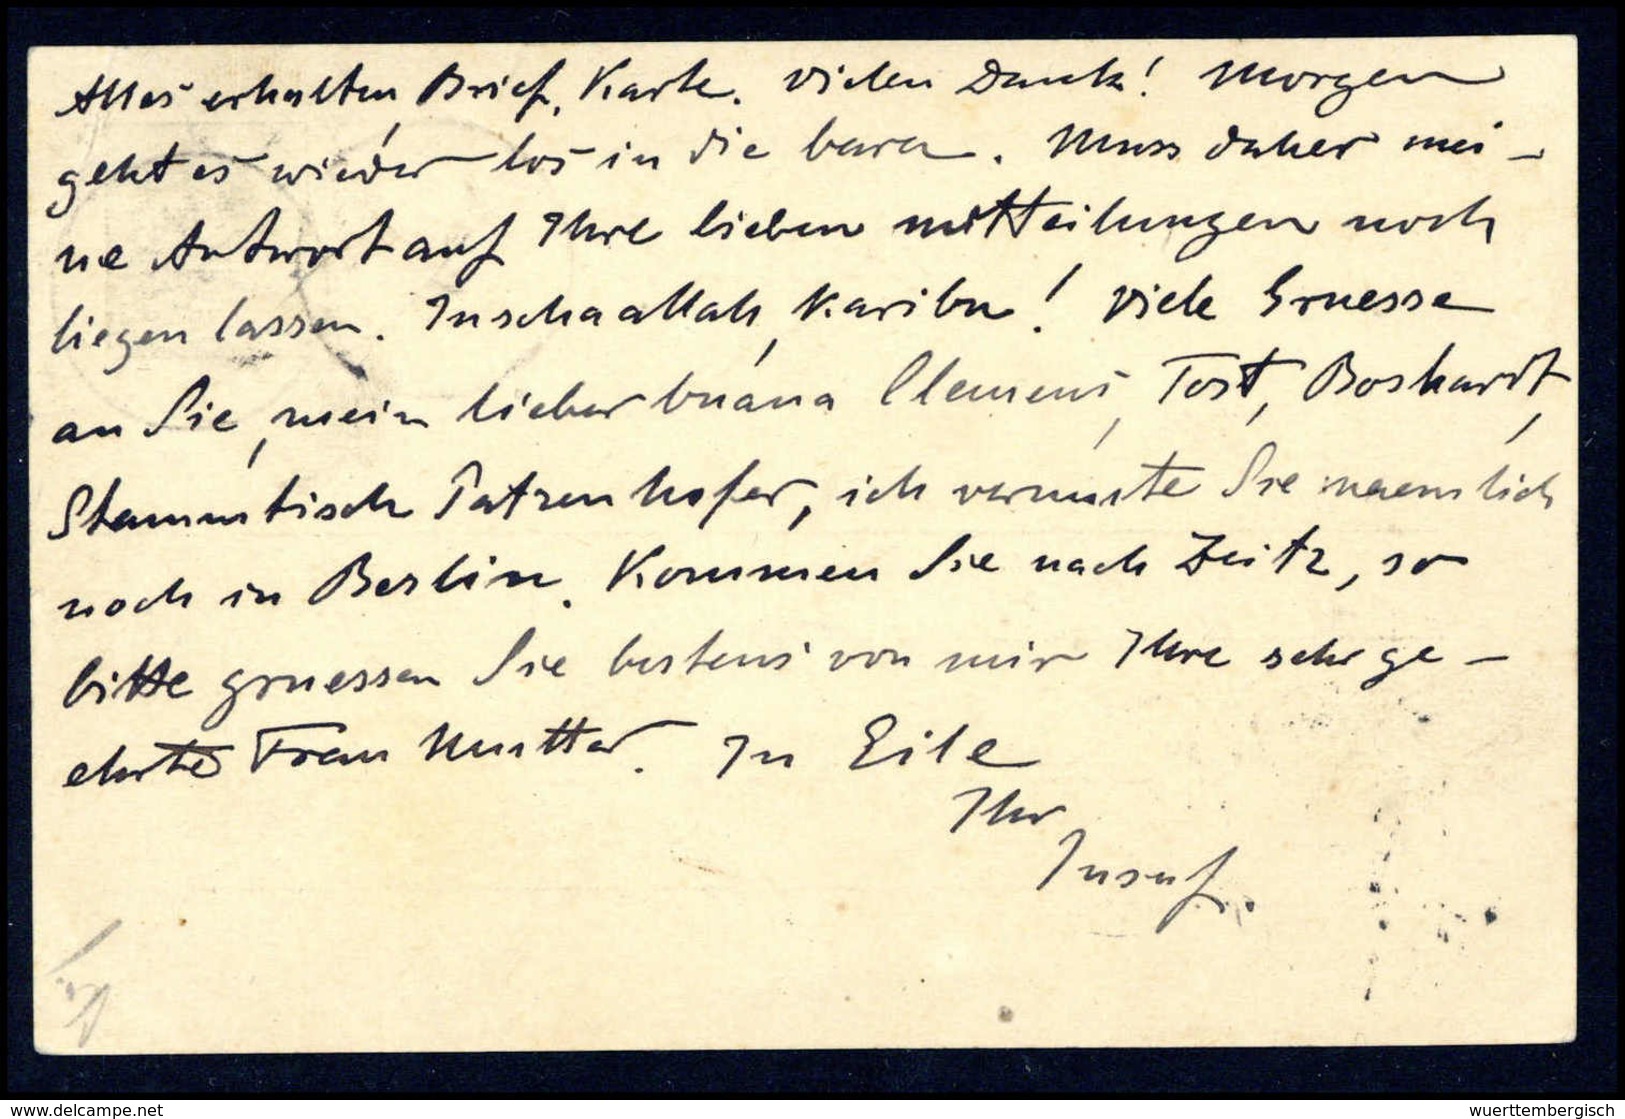 Alles erhalten, Brief, Karte. Vielen Dank! Morgen
geht es wieder los in die bara. Muss daher mei-
ne Antwort auf Ihre lieben mitteilungen noch
liegen lassen. Inschaallah, Karibu! Viele Gruesse
an Sie, mein lieber buana Clemens, Tost, Boshardt,
Stammtisch Patzenhofer, ich vermute Sie naemlich
noch in Berlin. Kommen Sie nach Zeitz, so
bitte gruessen Sie bestens von mir Ihre sehr ge-
ehrte Frau Mutter. In Eile
Ihr
Jusuf.
www.delcampe.net
wuerttembergisch